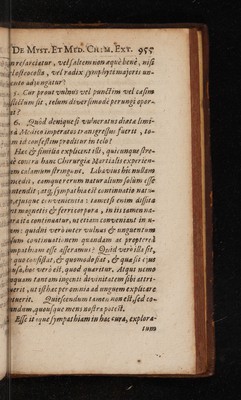 DE MYST. ET MED. CHIM. EXT. 955
resarciatur, vel saltem non æquè benè, nisi
osteocolla, vel radix symphyti majoris un-
ento adjungatur?
5. Cur prout vulnus vel punctim vel cæsim
inflictum sit, telum diversimodè perungi opor-
6. Quid denique si vulneratus diætæ limi-
à Medico imperatos transgressus fuerit, to-
um id confestim proditur in telo?
Hæc & similia explicent illi, quicunque stre-
nuè contra hanc Chirurgia Martialis experien-
calamum stringunt. Libavius hic nullam
concedit, eamque rerum naturalium solùm esse
contendit; atqui sympathia est continuatio natu-
cujusque convenientia: tametsi enim dissita
magnetis & ferri corpora, in iis tamen na-
continuatur, ut etiam conveniant in u-
num: quidni verò inter vulnus & unguentum
continuationem quandam ac proptereà
sympathiam esse asseramus? Quid verò illa sit,
quo consistat, & quomodo fiat, & quæ sit ejus
causa, hoc verò est, quod quæritur. Atqui nemo
unquam tantam ingenii divinitatem sibi attri-
buerit, ut esse hæc per omnia ad unguem explicare
noverit. Quiescendum tamen non est, sed co-
nandum, quousque mens nostra potest.
Esse itaque sympathiam in hac cura, explora-
tum